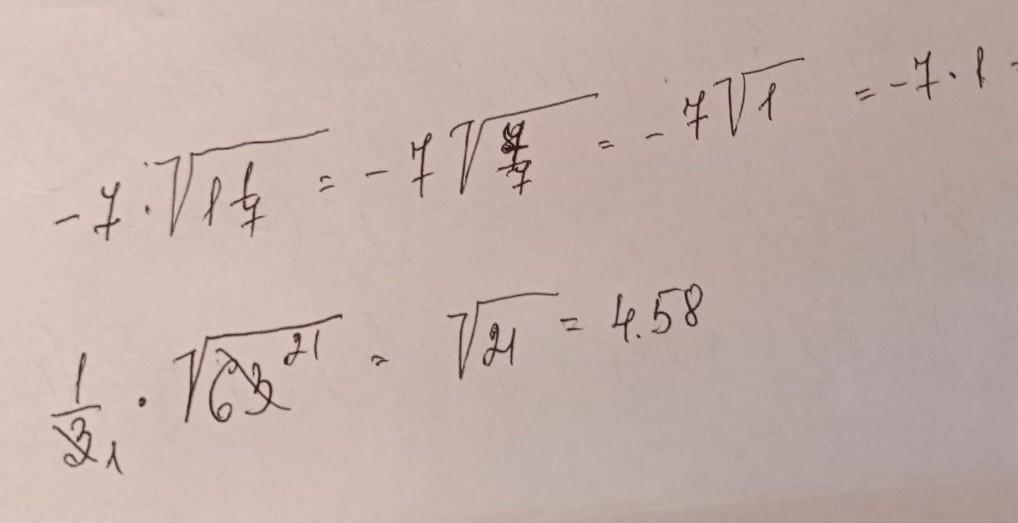 -7 · √1 1/7 = -7 √7/7 = -7 √1 = -7 · 1
1/3 1 · √63 21 = √21 = 4.58